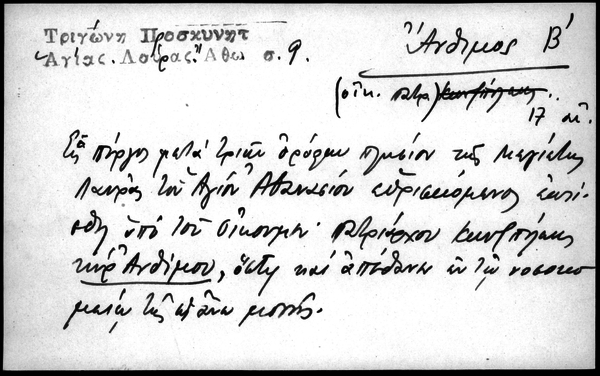 Τριγώνη Προσκυνητ
Ἁγίας Λαύρας Ἄθω σ. 9.
Ἄνθιμος Β΄
(οἰκ. πατρ.) Κωνσ/πόλεως
17 αἰ.
Εἷς πύργος μετὰ τριῶν ὀρόφων πλησίον τῆς Μεγίστης
Λαύρας τοῦ Ἁγίου Ἀθανασίου εὑρισκόμενος ἐκτί-
σθη ὑπὸ τοῦ Οἰκουμεν. Πατριάρχου Κωνσ/πόλεως
κὺρ Ἀνθίμου, ὅστις καὶ ἀπέθανεν ἐν τῷ νοσοκο-
μείῳ τῆς ὡς ἄνω μονῆς.